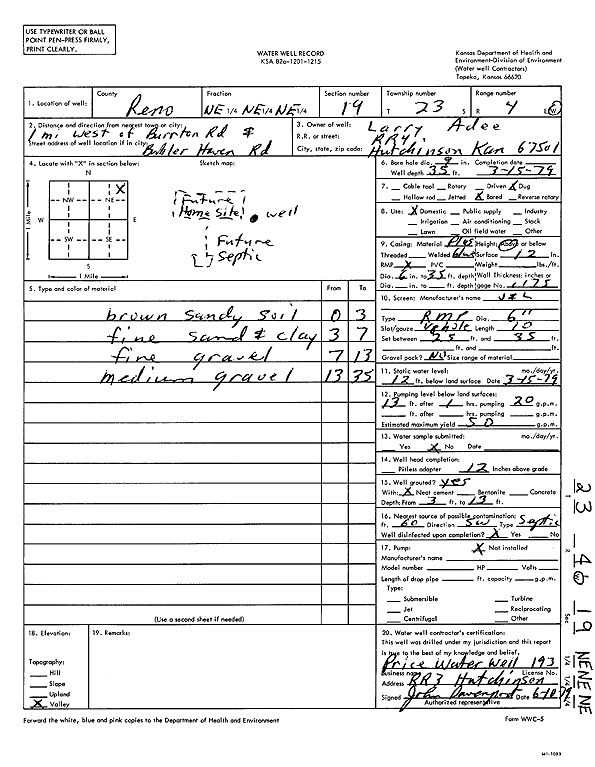 USE TYPEWRITER OR BALL
POINT PEN-PRESS FIRMLY,
PRINT CLEARLY.
WATER WELL RECORD
KSA 82a-1201-1215
Kansas Department of Health and
Environment-Division of Environment
(Water well Contractors)
Topeka, Kansas 66620
1. Location of well: County Reno Fraction NE 1/4 NE 1/4 NE 1/4 Section number 19 Township number T 23 S Range number R 4 E W
2. Distance and direction from nearest town or city: 1 mi west of Burrton Rd &
Street address of well location if in city: Buhler Haven Rd
3. Owner of well: Larry Adee
R.R. or street: RR4,
City, state, zip code: Hutchinson Kan 67501
4. Locate with "X" in section below:
Sketch map:
N
X
NW NE
W E
SW SE
S
1 Mile
1 Mile
Future
Home Site
well
Future
Septic
5. Type and color of material From To
brown sandy soil 0 3
fine sand & clay 3 7
fine gravel 7 13
medium gravel 13 35
(Use a second sheet if needed)
6. Bore hole dia. 9 in. Completion date
Well depth 35 ft. 3-15-79
7. Cable tool Rotary Driven X Dug
Hollow rod Jetted X Bored Reverse rotary
8. Use: X Domestic Public supply Industry
Irrigation Air conditioning Stock
Lawn Oil field water Other
9. Casing: Material Plas Height: Above or below
Threaded Welded Surface 12 in.
RMP X PVC Weight lbs./ft.
Dia. 6 in. to 35 ft. depth Wall Thickness: inches or
Dia. in. to ft. depth gage No.
10. Screen: Manufacturer's name
Type RMP Dia. 6"
Slot/gauze Length 10
Set between 25 ft. and 35 ft.
ft. and ft.
Gravel pack? No Size range of material
11. Static water level: mo./day/yr.
12 ft. below land surface Date 3-15-79
12. Pumping level below land surfaces:
13 ft. after 1 hrs. pumping 20 g.p.m.
ft. after hrs. pumping g.p.m.
Estimated maximum yield 50 g.p.m.
13. Water sample submitted: mo./day/yr.
Yes X No Date
14. Well head completion:
Pitless adapter 12 Inches above grade
15. Well grouted? yes
With: X Neat cement Bentonite Concrete
Depth: From 3 ft. to 13 ft.
16. Nearest source of possible contamination:
ft. 60 Direction SW Type Septic
Well disinfected upon completion? X Yes No
17. Pump: X Not installed
Manufacturer's name
Model number HP Volts
Length of drop pipe ft. capacity g.p.m.
Type:
Submersible Turbine
Jet Reciprocating
Centrifugal Other
18. Elevation:
Topography:
Hill
Slope
Upland
X Valley
19. Remarks:
20. Water well contractor's certification:
This well was drilled under my jurisdiction and this report
is true to the best of my knowledge and belief.
Price Water Well 193
Business name License No.
Address RR3 Hutchinson
Signed John Davenport Date
Authorized representative
Forward the white, blue and pink copies to the Department of Health and Environment
Form WWC-5
T 23
R 4 W
Sec 19
1/4 1/4 1/4 NE NE NE